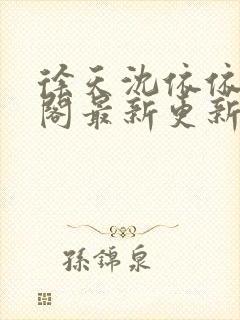 徐天沈依依
閣最新更新
孫錦泉